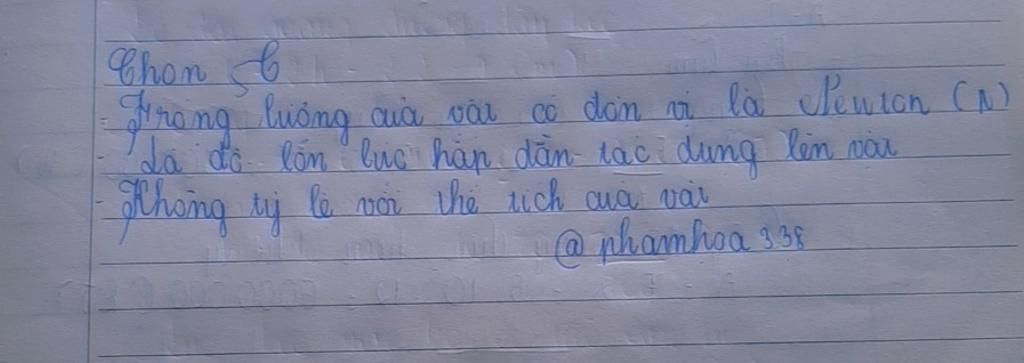 Chọn C
- Trọng lượng của vật có đơn vị là Newton (N)
- Là độ lớn lực hấp dẫn tác dụng lên vật
- Không tỷ lệ với thể tích của vật
@phamhoa338